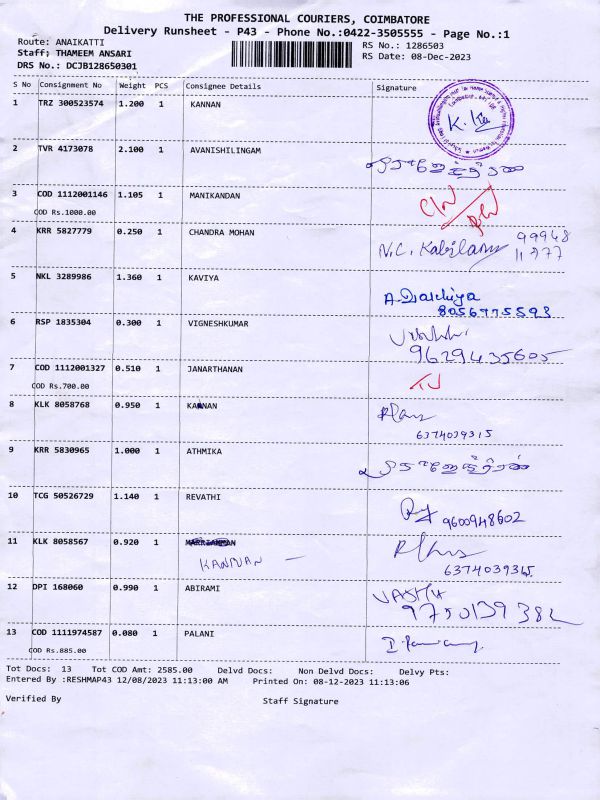 THE PROFESSIONAL COURIERS, COIMBATORE
Delivery Runsheet - P43 - Phone No.:0422-3505555 - Page No.:1
Route: ANAIKATTI
RS No.: 1286503
Staff; THAMEEM ANSARI
RS Date: 08-Dec-2023
DRS No.: DCJB128650301
S No Consignment No Weight PCS Consignee Details Signature
1 TRZ 300523574 1.200 1 KANNAN
2 TVR 4173078 2.100 1 AVANISHILINGAM
3 COD 1112001146 1.105 1 MANIKANDAN
COD Rs.1000.00
4 KRR 5827779 0.250 1 CHANDRA MOHAN
N.C. Kabilan
5 NKL 3289986 1.360 1 KAVIYA
8056775593
6 RSP 1835304 0.300 1 VIGNESHKUMAR
9629435605
7 COD 1112001327 0.510 1 JANARTHANAN
COD Rs.700.00
8 KLK 8058768 0.950 1 KANNAN
6374039315
9 KRR 5830965 1.000 1 ATHMIKA
10 TCG 50526729 1.140 1 REVATHI
9600948602
11 KLK 8058567 0.920 1
KANNAN
12 DPI 168060 0.990 1 ABIRAMI
9750139382
13 COD 1111974587 0.080 1 PALANI
COD Rs.885.00
Tot Docs: 13 Tot COD Amt: 2585.00 Delvd Docs: Non Delvd Docs: Delvy Pts:
Entered By :RESHMAP43 12/08/2023 11:13:00 AM Printed On: 08-12-2023 11:13:06
Verified By Staff Signature